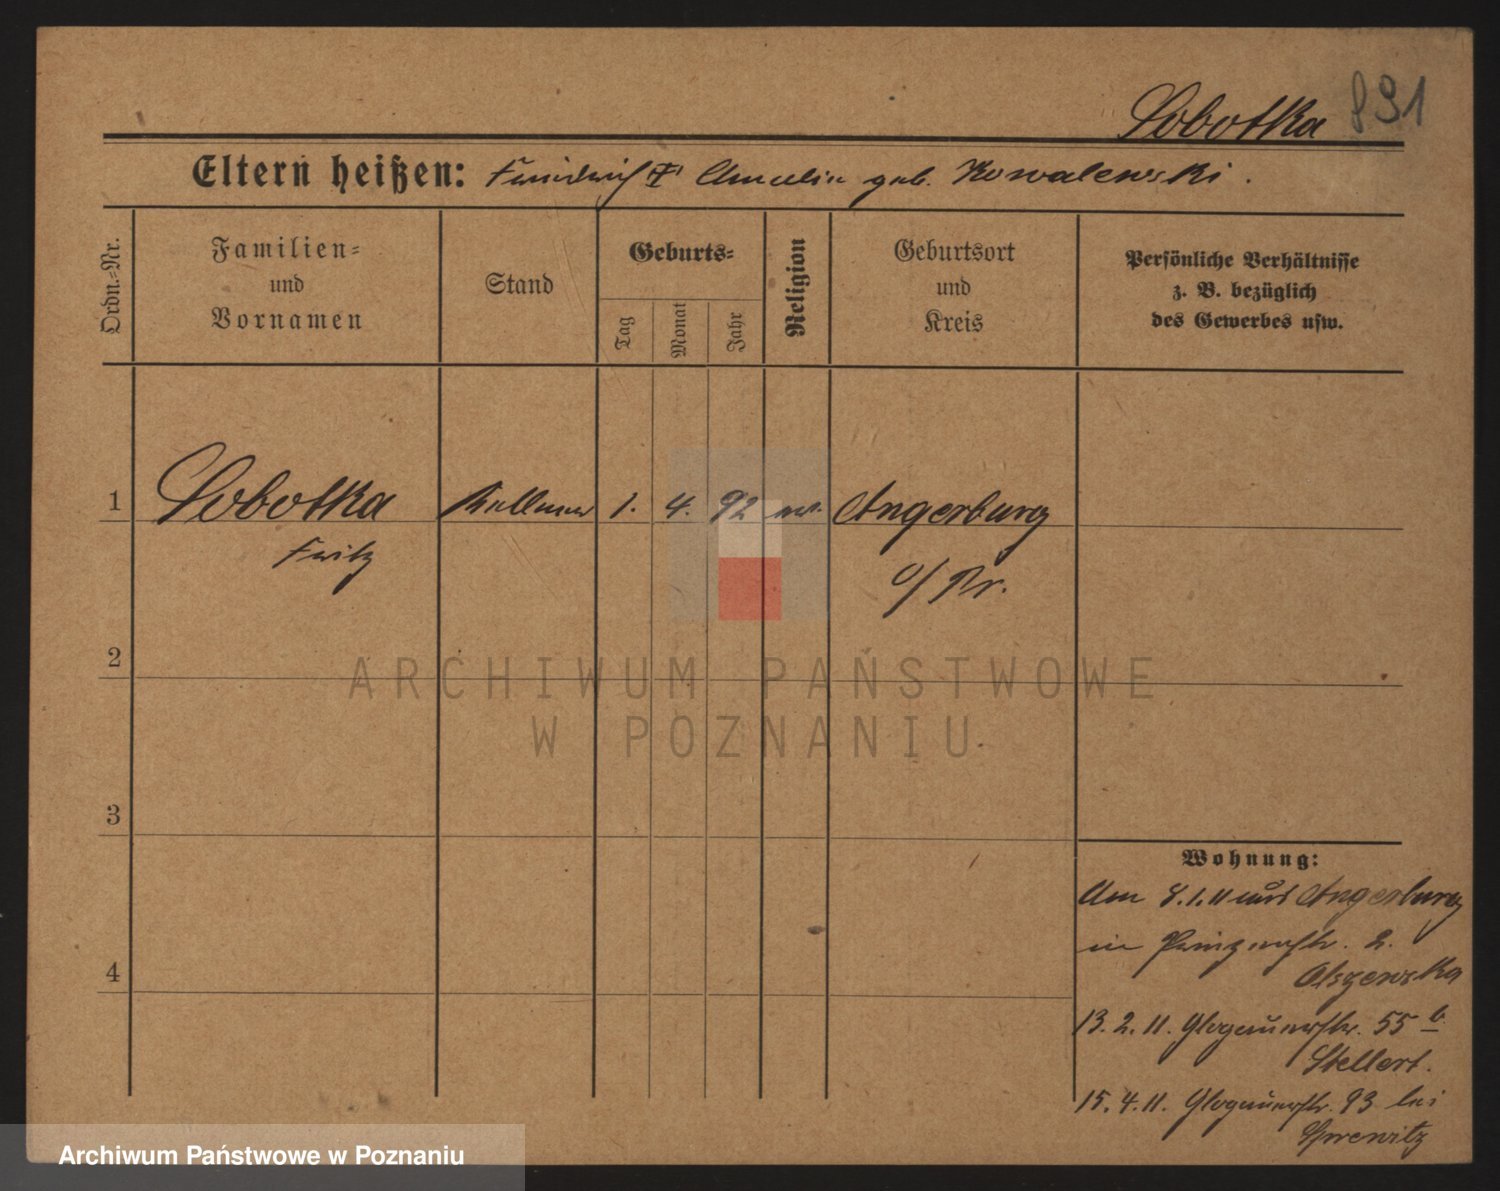 Sobotka 891
Eltern heißen: Friedrich † Amalie geb. Kowalewski.
Ordn.=Nr.
Familien=
und
Vornamen
Stand
Geburts=
Tag
Monat
Jahr
Religion
Geburtsort
und
Kreis
Persönliche Verhältnisse
z. B. bezüglich
des Gewerbes usw.
1 Sobotka Kellner 1. 4. 92 ev. Angerburg
Fritz
O/Pr.
2
ARCHIWUM PAŃSTWOWE
W POZNANIU
3
Wohnung:
Am 8.1.11 aus Angerburg
in Prinzenstr. 2.
Olszewska
4
13.2.11. Glogauerstr. 55 b
Stellert.
15.4.11. Glogauerstr. 93 bei
Archiwum Państwowe w Poznaniu